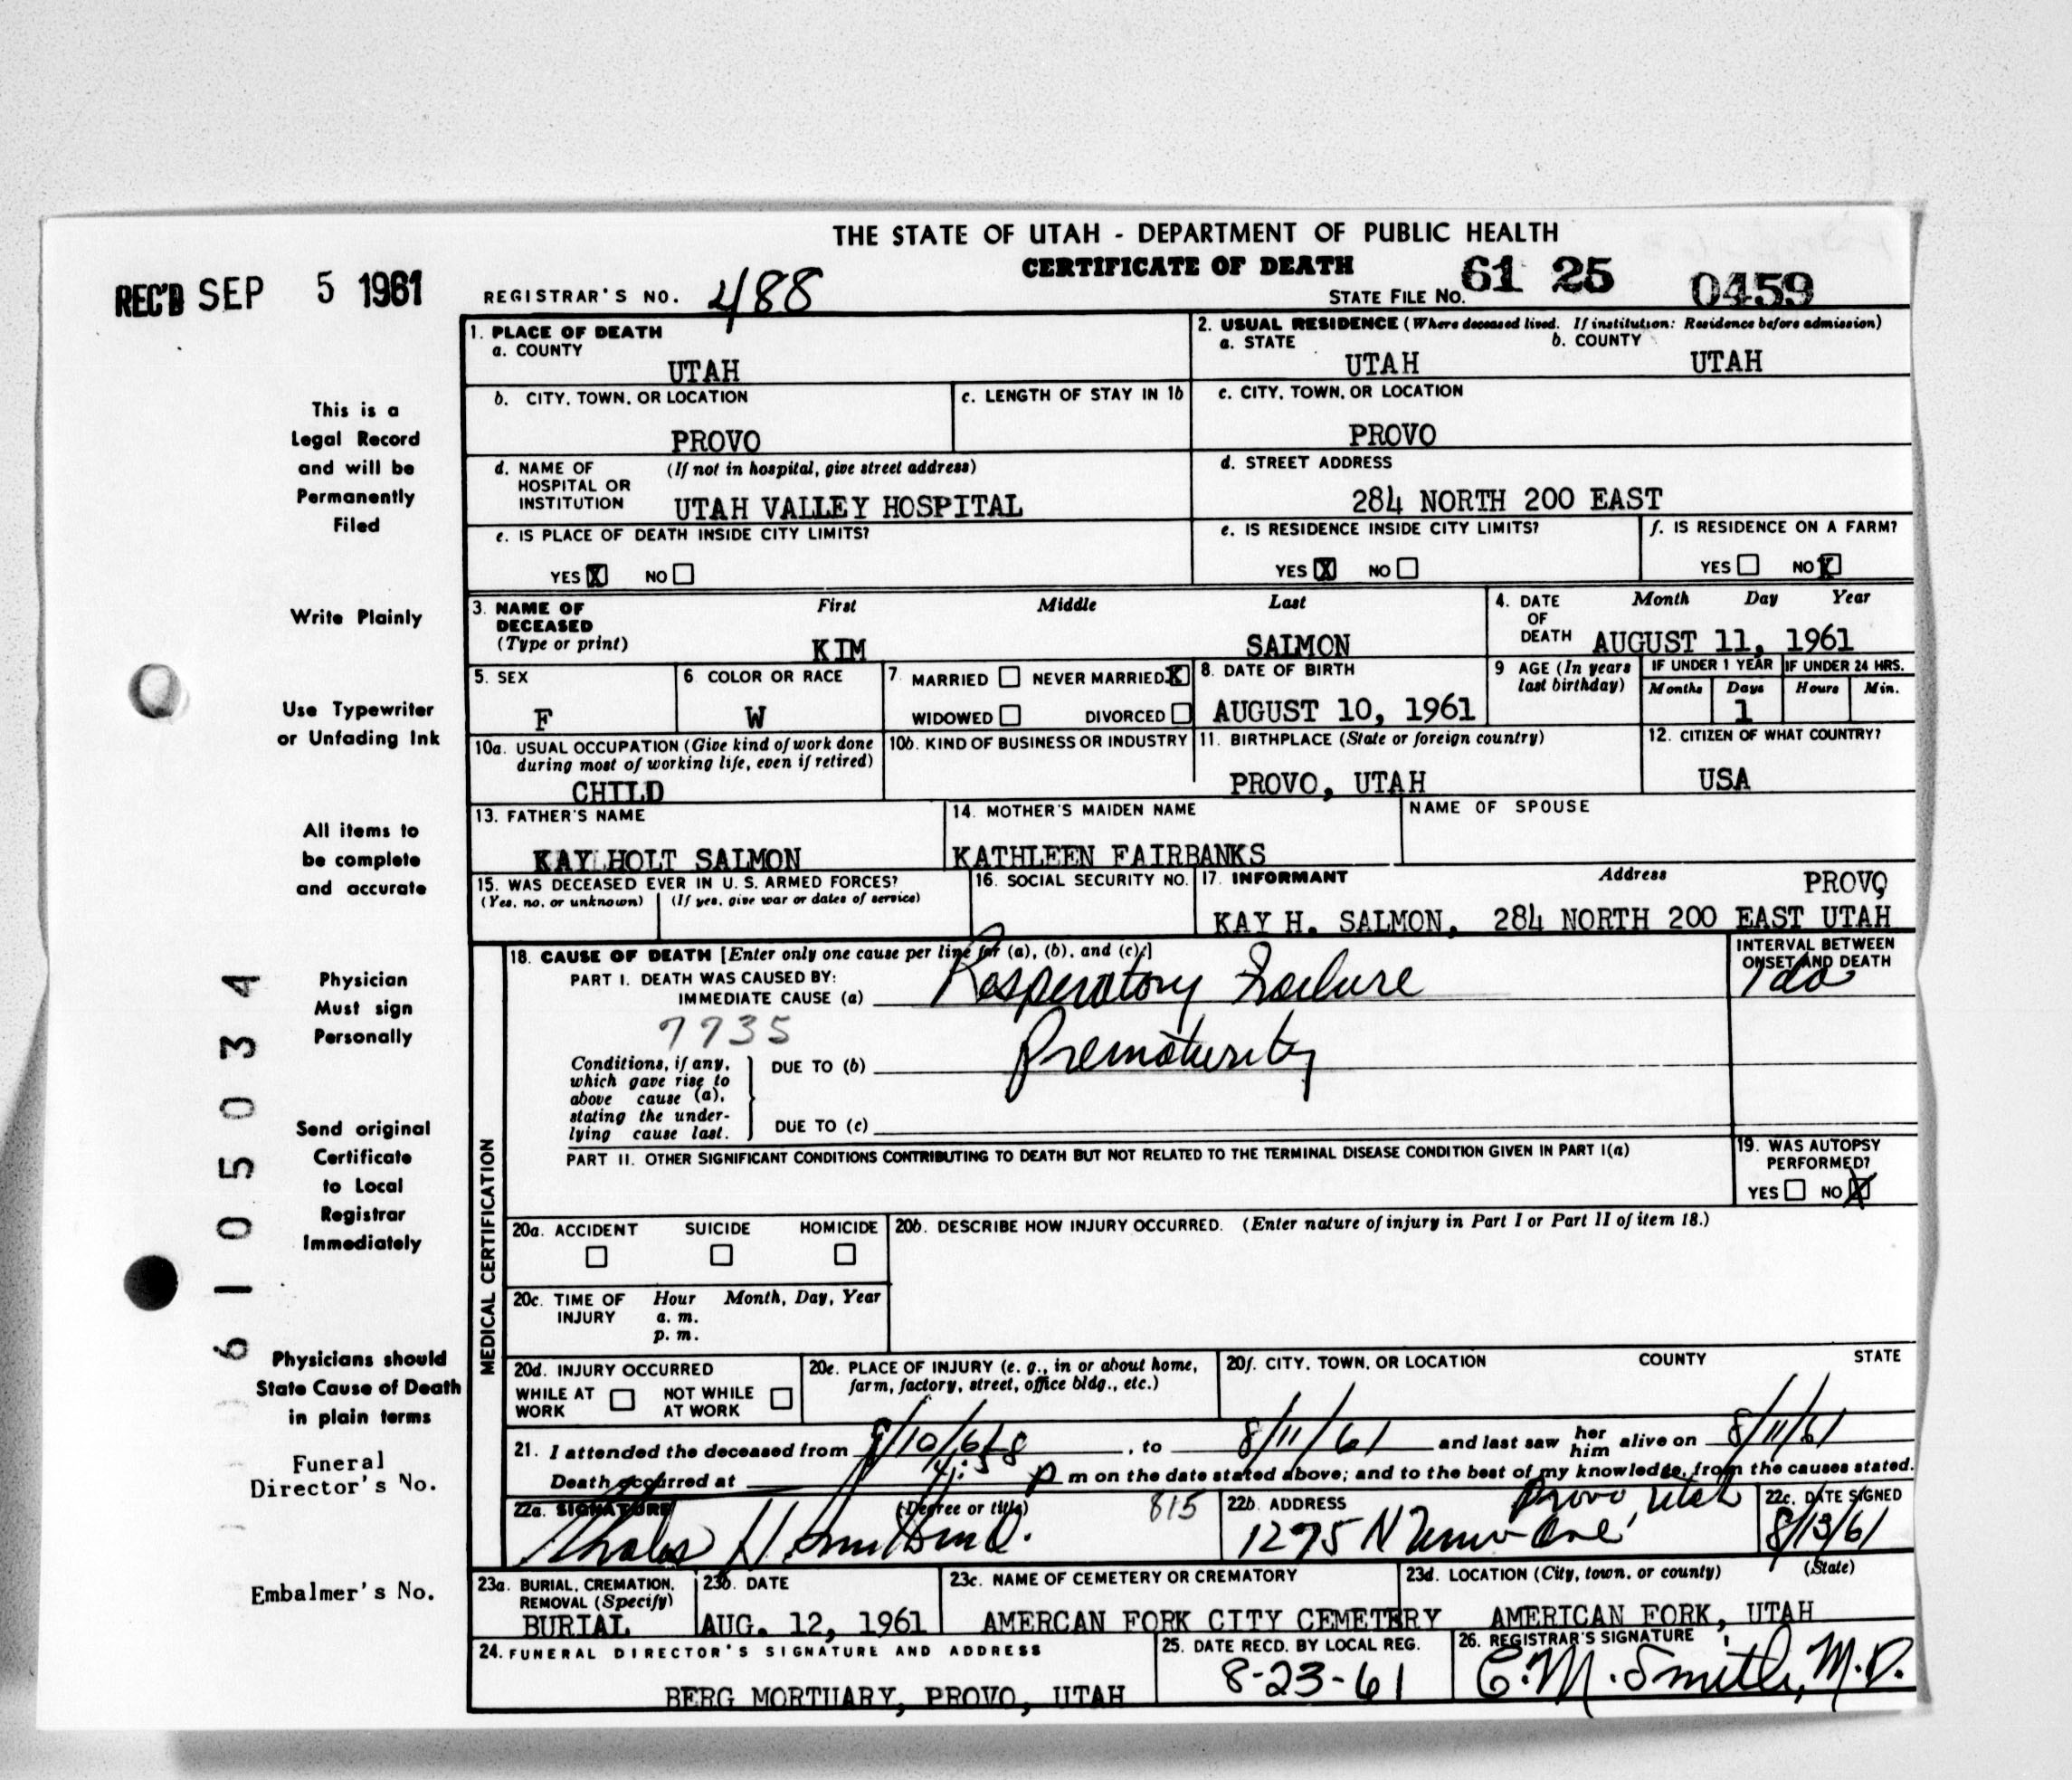 THE STATE OF UTAH - DEPARTMENT OF PUBLIC HEALTH
CERTIFICATE OF DEATH
REC'D SEP 5 1961
REGISTRAR'S NO. 488
STATE FILE NO. 61 25 0459
This is a
Legal Record
and will be
Permanently
Filed
Write Plainly
Use Typewriter
or Unfading Ink
All items to
be complete
and accurate
Physician
Must sign
Personally
Send original
Certificate
to Local
Registrar
Immediately
Physicians should
State Cause of Death
in plain terms
Funeral
Director's No.
Embalmer's No.
6105034
1. PLACE OF DEATH
a. COUNTY
UTAH
2. USUAL RESIDENCE (Where deceased lived. If institution: Residence before admission)
a. STATE b. COUNTY
UTAH UTAH
b. CITY, TOWN, OR LOCATION
PROVO
c. LENGTH OF STAY IN 1b
c. CITY, TOWN, OR LOCATION
PROVO
d. NAME OF (If not in hospital, give street address)
HOSPITAL OR
INSTITUTION UTAH VALLEY HOSPITAL
d. STREET ADDRESS
284 NORTH 200 EAST
e. IS PLACE OF DEATH INSIDE CITY LIMITS?
YES X NO
e. IS RESIDENCE INSIDE CITY LIMITS?
YES X NO
f. IS RESIDENCE ON A FARM?
YES NO X
3. NAME OF First Middle Last
DECEASED
(Type or print) KIM SALMON
4. DATE Month Day Year
OF
DEATH AUGUST 11, 1961
5. SEX
F
6 COLOR OR RACE
W
7 MARRIED NEVER MARRIED X
WIDOWED DIVORCED
8. DATE OF BIRTH
AUGUST 10, 1961
9 AGE (In years
last birthday)
IF UNDER 1 YEAR IF UNDER 24 HRS.
Months Days Hours Min.
1
10a. USUAL OCCUPATION (Give kind of work done
during most of working life, even if retired)
CHILD
10b. KIND OF BUSINESS OR INDUSTRY
11. BIRTHPLACE (State or foreign country)
PROVO, UTAH
12. CITIZEN OF WHAT COUNTRY?
USA
13. FATHER'S NAME
KAY HOLT SALMON
14. MOTHER'S MAIDEN NAME
KATHLEEN FAIRBANKS
NAME OF SPOUSE
15. WAS DECEASED EVER IN U. S. ARMED FORCES?
(Yes, no, or unknown) (If yes, give war or dates of service)
16. SOCIAL SECURITY NO.
17. INFORMANT Address PROVO,
KAY H. SALMON, 284 NORTH 200 EAST UTAH
MEDICAL CERTIFICATION
18. CAUSE OF DEATH [Enter only one cause per line for (a), (b), and (c).]
PART I. DEATH WAS CAUSED BY:
IMMEDIATE CAUSE (a) Respiratory Failure
INTERVAL BETWEEN
ONSET AND DEATH
1 da
7735
Conditions, if any,
which gave rise to
above cause (a),
stating the under-
lying cause last.
DUE TO (b) Prematurity
DUE TO (c)
PART II. OTHER SIGNIFICANT CONDITIONS CONTRIBUTING TO DEATH BUT NOT RELATED TO THE TERMINAL DISEASE CONDITION GIVEN IN PART I(a)
19. WAS AUTOPSY
PERFORMED?
YES NO X
20a. ACCIDENT SUICIDE HOMICIDE
20b. DESCRIBE HOW INJURY OCCURRED. (Enter nature of injury in Part I or Part II of item 18.)
20c. TIME OF Hour Month, Day, Year
INJURY a. m.
p. m.
20d. INJURY OCCURRED
WHILE AT WORK NOT WHILE AT WORK
20e. PLACE OF INJURY (e. g., in or about home,
farm, factory, street, office bldg., etc.)
20f. CITY, TOWN, OR LOCATION COUNTY STATE
21. I attended the deceased from 8/10/61, to 8/11/61 and last saw her him alive on 8/11/61
Death occurred at p m on the date stated above; and to the best of my knowledge, from the causes stated.
22a. SIGNATURE (Degree or title) 815
22b. ADDRESS Provo, Utah
1275 N
22c. DATE SIGNED
8/13/61
23a. BURIAL, CREMATION,
REMOVAL (Specify)
BURIAL
23b. DATE
AUG. 12, 1961
23c. NAME OF CEMETERY OR CREMATORY
AMERCAN FORK CITY CEMETERY
23d. LOCATION (City, town, or county) (State)
AMERICAN FORK, UTAH
24. FUNERAL DIRECTOR'S SIGNATURE AND ADDRESS
BERG MORTUARY, PROVO, UTAH
25. DATE RECD. BY LOCAL REG.
8-23-61
26. REGISTRAR'S SIGNATURE
E. M. Smith, M.D.